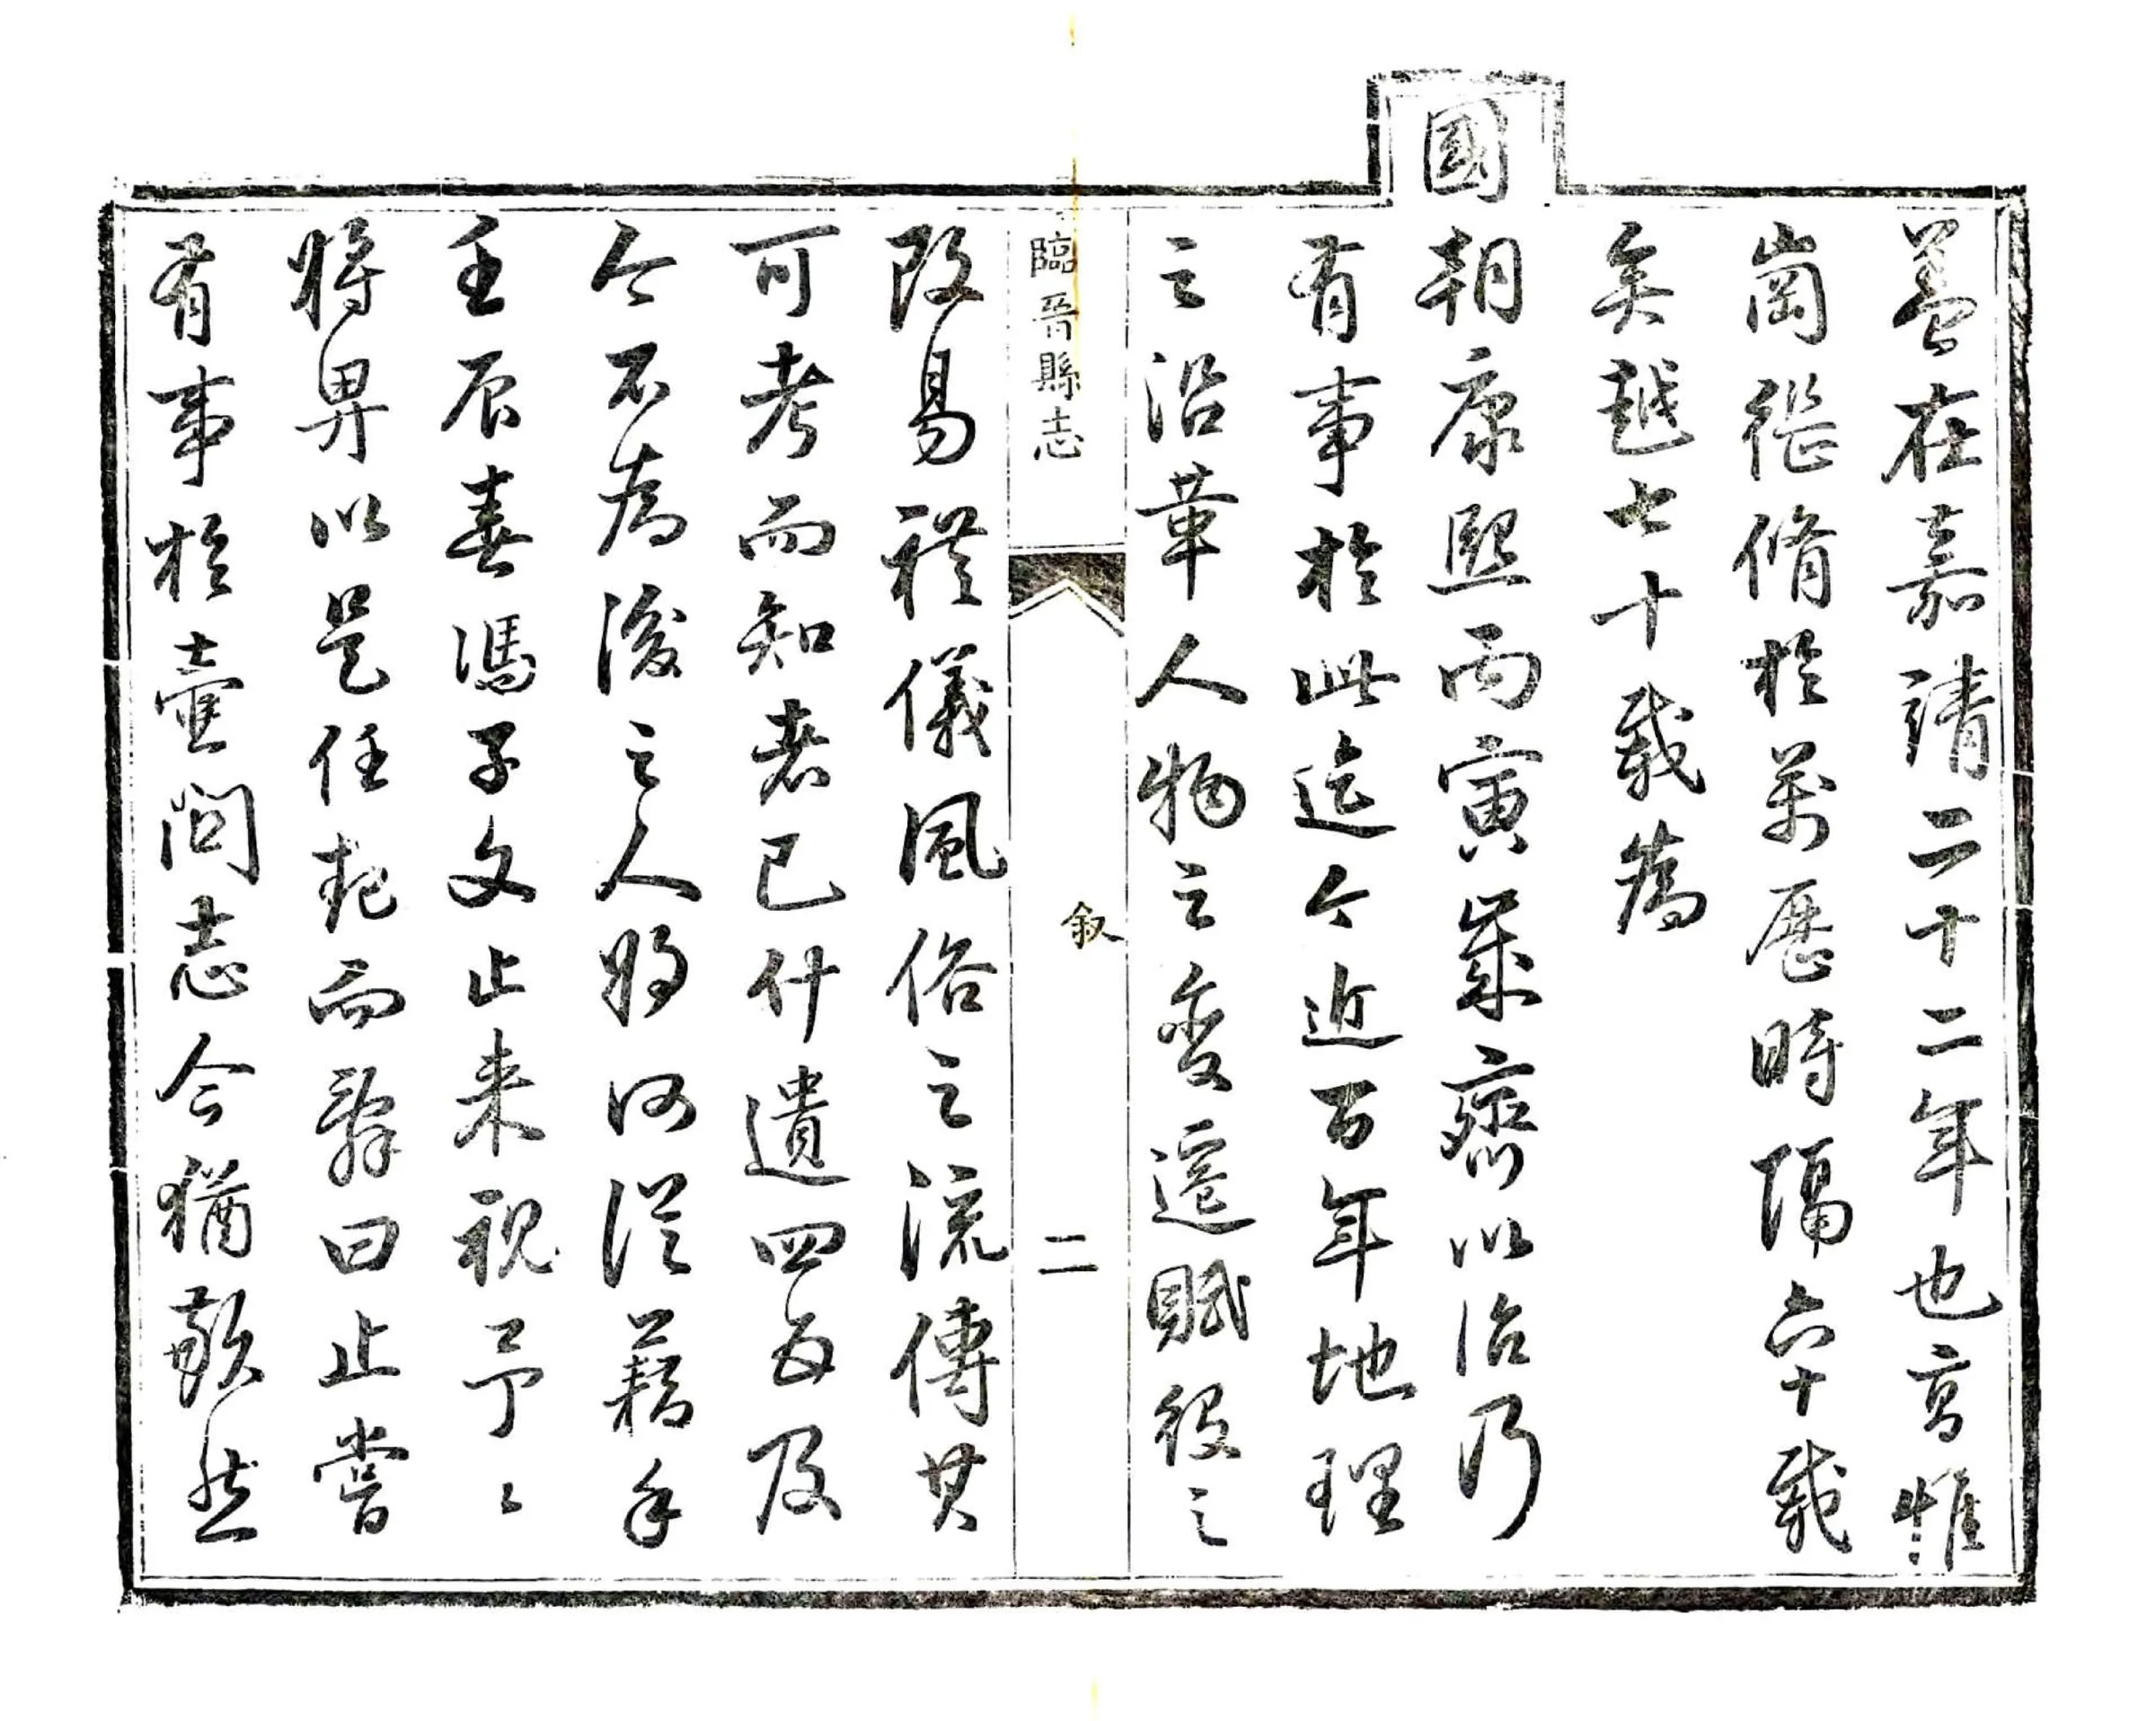 蓋在嘉靖二十二年也高惟
崗從脩於萬历時隔六十載
矣越七十載為
國朝康熙丙寅歲齋以治乃
有事於此迄今近百年地理
之沿革人物之變遷賦役之
臨晉縣志
叙
二
改易禮儀風俗之流傳其
可考而知者已什遺四五及
今不為後之人將何從藉手
壬辰春馮子文止来視予〻
將畀以是任起而辭曰止嘗
有事於壺關志今猶歉然